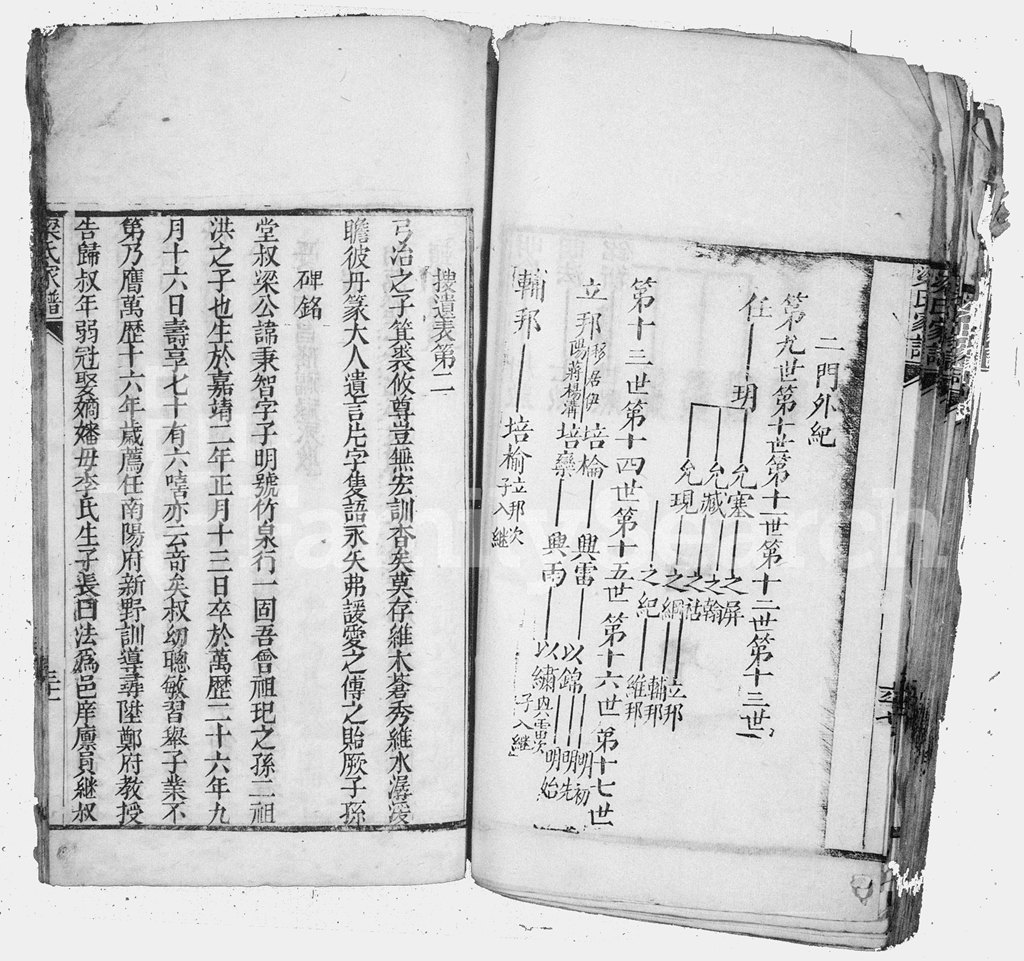 二門外紀
第九世第十世第十一世第十二世第十三世
任
玥
允塞
允臧
允現
之屏
之翰
之祜
之綱
之紀
立邦
輔邦
維邦
第十三世第十四世第十五世第十六世第十七世
立邦 移居伊陽蔣楊溝
培棆
培欒
興雷
興雨
以錦
以繡 興雷次子入繼
明初
明先
明始
輔邦
培榆 立邦次子入繼
梁氏家譜
搜遺表第二
弓冶之子箕裘攸尊豈無宏訓杳矣莫存維木蒼秀維水潺湲
瞻彼丹篆大人遺言片字隻語永矢弗諼愛之傳之貽厥子孫
碑銘
堂叔梁公諱秉智字子明號竹泉行一固吾曾祖玘之孫二祖
洪之子也生於嘉靖二年正月十三日卒於萬歷二十六年九
月十六日壽享七十有六嘻亦云奇矣叔幼聰敏習舉子業不
第乃膺萬歷十六年歲薦任南陽府新野訓導尋陞鄭府教授
告歸叔年弱冠娶嫡嬸毋李氏生子長曰法爲邑庠廩員継叔
梁氏家譜